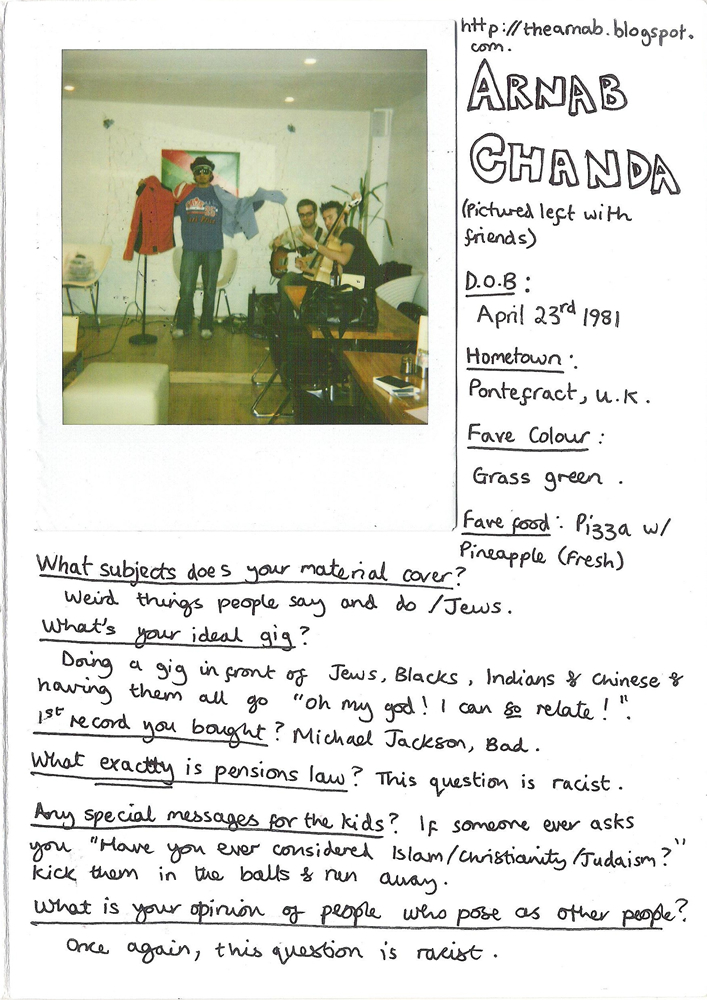 http://thearnab.blogspot.
com.
ARNAB
CHANDA
(Pictured left with
friends)
D.O.B:
April 23rd 1981
Hometown:
Pontefract, U.K.
Fave Colour:
Grass green.
Fave food: Pizza w/
Pineapple (Fresh)
What subjects does your material cover?
Weird things people say and do / Jews.
What's your ideal gig?
Doing a gig in front of Jews, Blacks, Indians & Chinese &
having them all go "Oh my god! I can so relate!".
1st record you bought? Michael Jackson, Bad.
What exactly is pensions law? This question is racist.
Any special messages for the kids? If someone ever asks
you "Have you ever considered Islam/Christianity/Judaism?"
kick them in the balls & run away.
What is your opinion of people who pose as other people?
Once again, this question is racist.